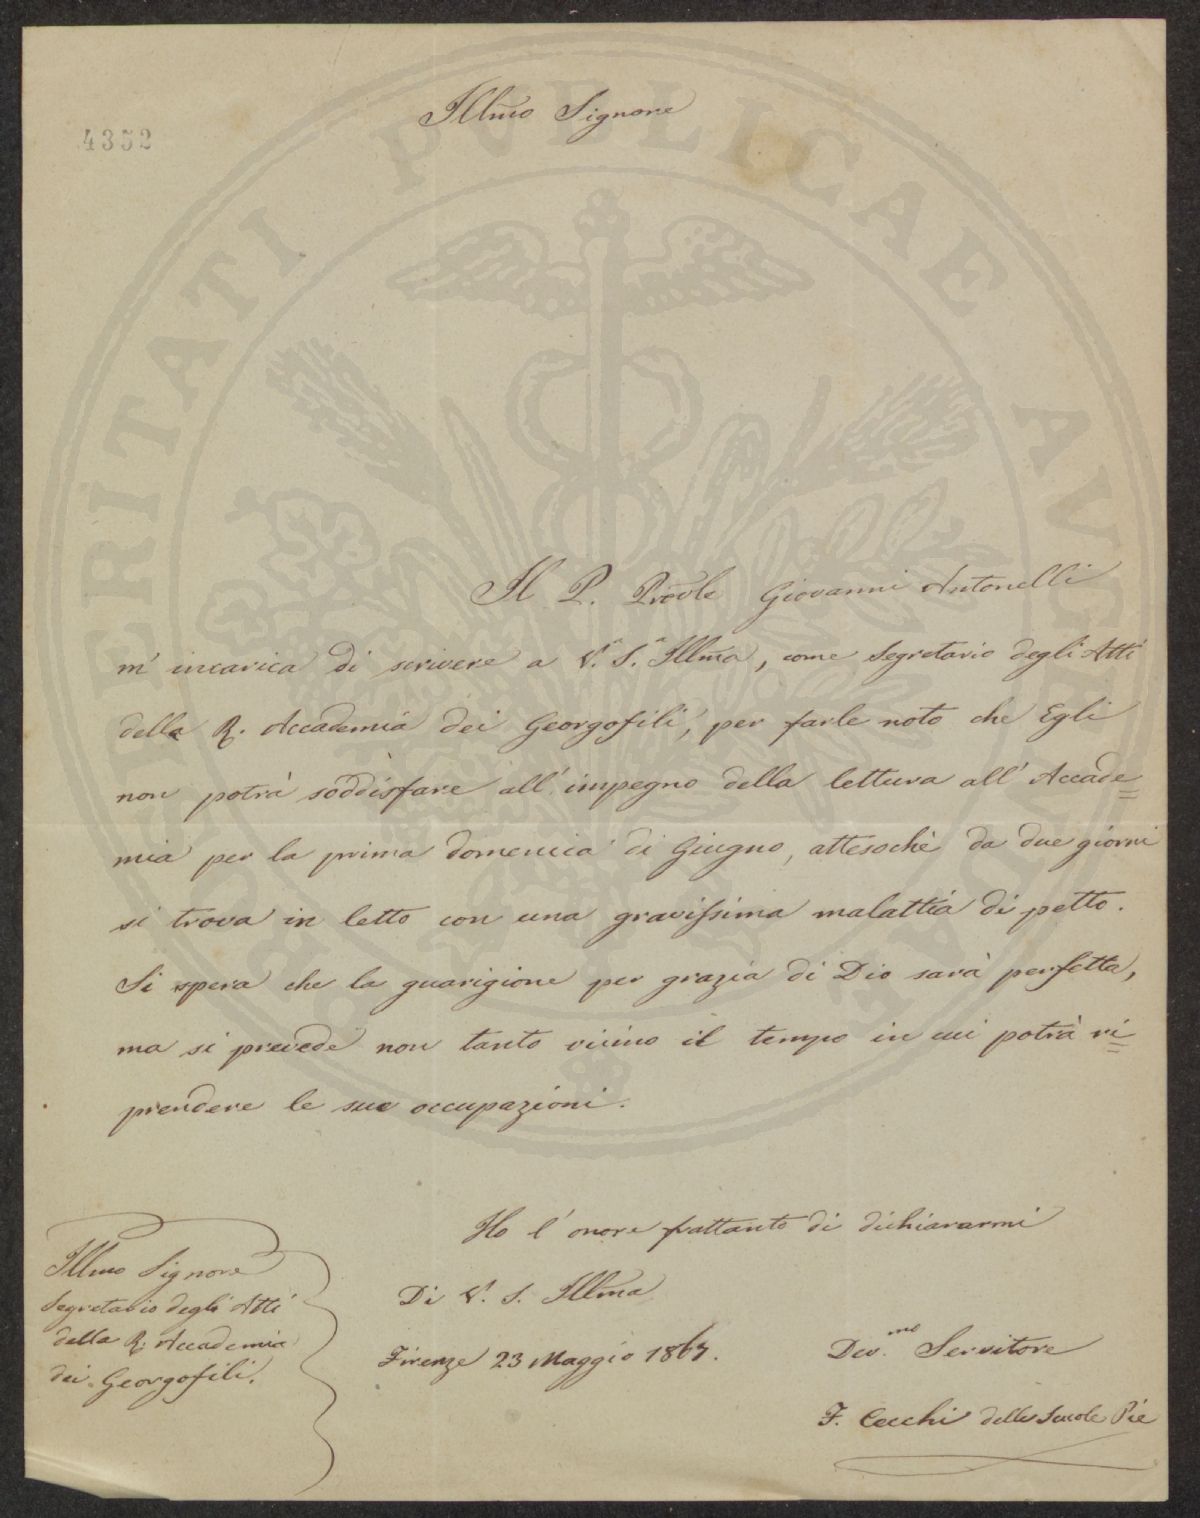 4352
Illmo Signore
Il P. Provle Giovanni Antonelli
m' incarica di scrivere a V.ª S.ª Illma, come Segretario degli Atti
della R. Accademia dei Georgofili, per farle noto che Egli
non potrà soddisfare all' impegno della lettura all' Accade=
mia per la prima domenica di Giugno, attesochè da due giorni
si trova in letto con una gravissima malattia di petto.
Si spera che la guarigione per grazia di Dio sarà perfetta,
ma si prevede non tanto vicino il tempo in cui potrà ri=
prendere le sue occupazioni.
Ho l' onore frattanto di dichiararmi
Di V. S. Illma
Firenze 23 Maggio 1867.
Dev.mo Servitore
F. Cecchi delle Scuole Pie
Illmo Signore
Segretario degli Atti
della R. Accademia
dei Georgofili.
PROSPERITATI PVBLICAE AVGENDAE